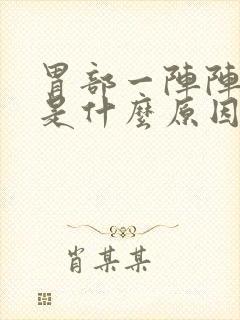 胃部一陣陣
是什麼原因
肖某某